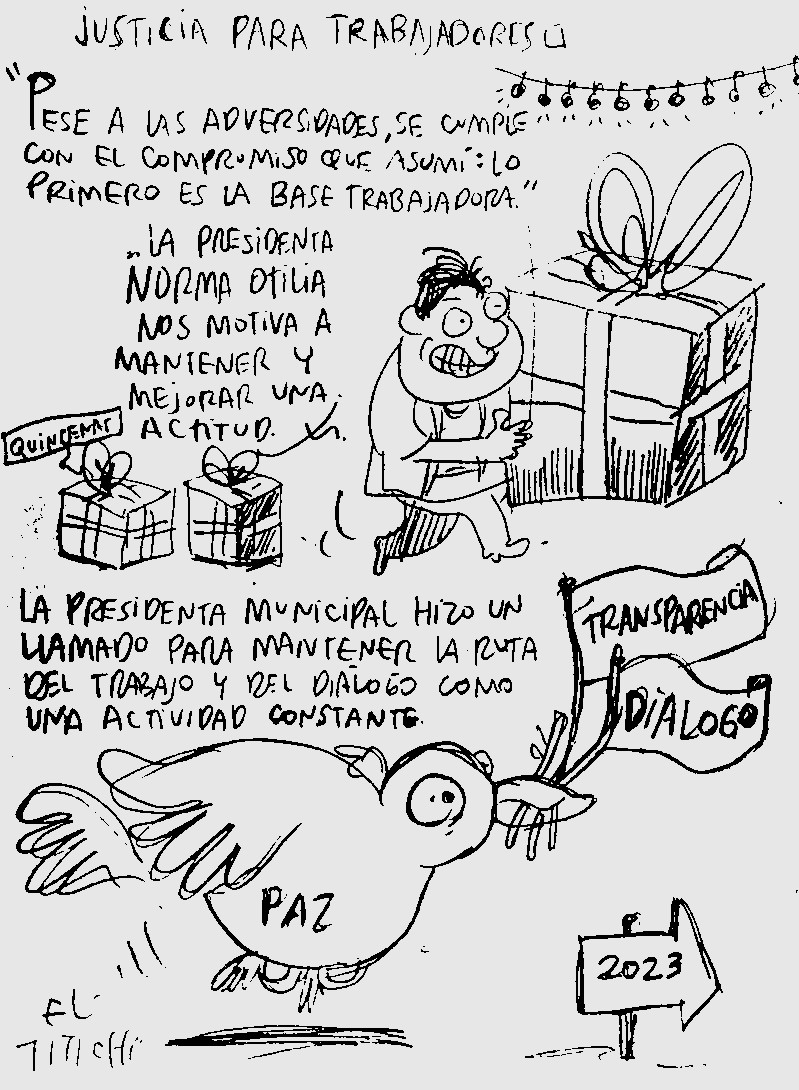 JUSTICIA PARA TRABAJADORES
"PESE A LAS ADVERSIDADES, SE CUMPLE
CON EL COMPROMISO QUE ASUMÍ: LO
PRIMERO ES LA BASE TRABAJADORA."
„LA PRESIDENTA
NORMA OTILIA
NOS MOTIVA A
MANTENER Y
MEJORAR UNA
ACTITUD.
QUINCENAS
LA PRESIDENTA MUNICIPAL HIZO UN
LLAMADO PARA MANTENER LA RUTA
DEL TRABAJO Y DEL DIÁLOGO COMO
UNA ACTIVIDAD CONSTANTE.
TRANSPARENCIA
DIALOGO
PAZ
2023
EL
TITICHI